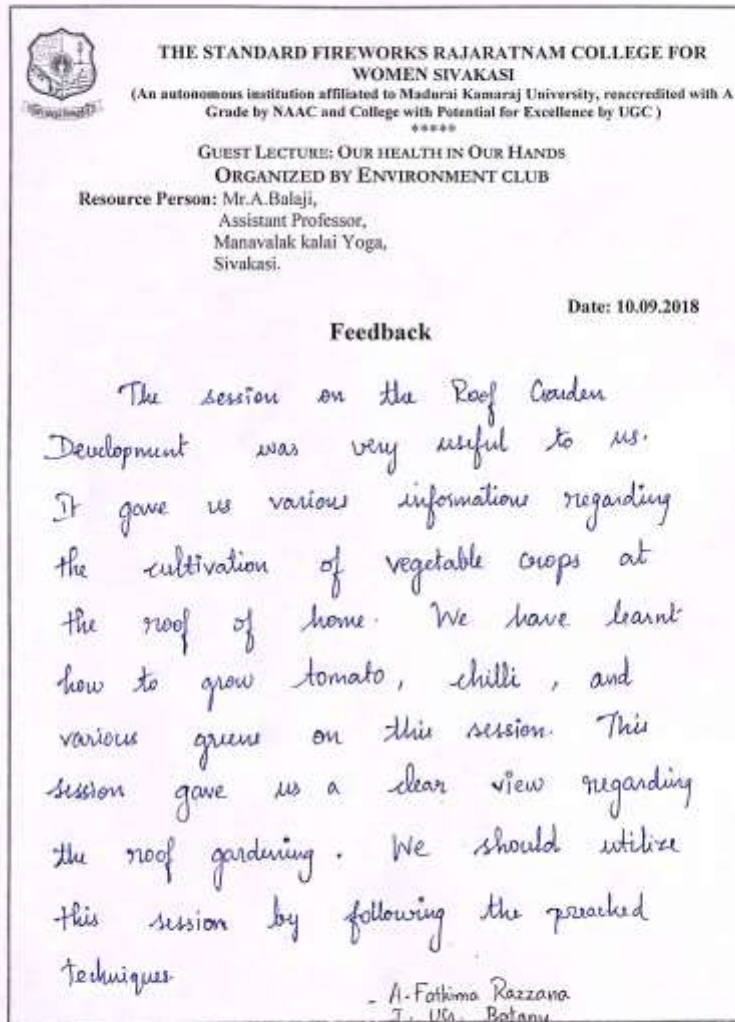 THE STANDARD FIREWORKS RAJARATNAM COLLEGE FOR
WOMEN SIVAKASI
(An autonomous institution affiliated to Madurai Kamaraj University, reaccredited with A
Grade by NAAC and College with Potential for Excellence by UGC )
*****
GUEST LECTURE: OUR HEALTH IN OUR HANDS
ORGANIZED BY ENVIRONMENT CLUB
Resource Person: Mr.A.Balaji,
Assistant Professor,
Manavalak kalai Yoga,
Sivakasi.
Date: 10.09.2018
Feedback
The session on the Roof Garden
Development was very useful to us.
It gave us various informations regarding
the cultivation of vegetable crops at
the roof of home. We have learnt
how to grow tomato, chilli, and
various greens on this session. This
session gave us a clear view regarding
the roof gardening. We should utilize
this session by following the preached
techniques
- A. Fathima Razzana
I. UG. Botany